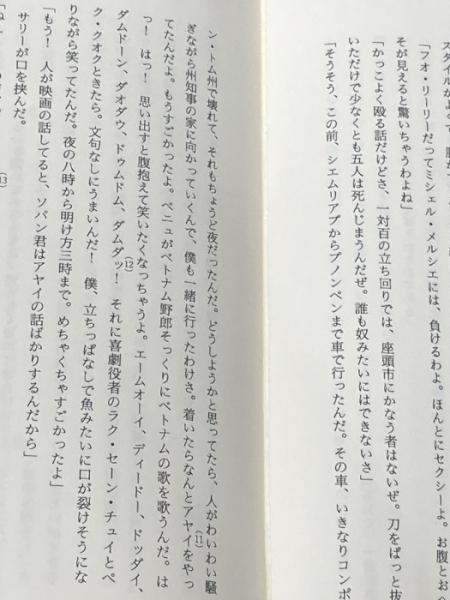 スタイルがよって、腰が
「フォ・リーリーだってミシェル・メルシエには、負けるわよ。ほんとにセクシーよ。お腹とおへ
そが見えると驚いちゃうわよね」
「かっこよく殴る話だけどさ、一対百の立ち回りでは、座頭市にかなう者はないぜ。刀をぱっと抜
いただけで少なくとも五人は死んじまうんだぜ。誰も奴みたいにはできないさ」
「そうそう、この前、シエムリアプからプノンペンまで車で行ったんだ。その車、いきなりコンポ
ン・トム州で壊れて、それもちょうど夜だったんだ。どうしようかと思ってたら、人がわいわい騒
ぎながら州知事の家に向かっていくんで、僕も一緒に行ったわけさ。着いたらなんとアヤイをやっ
(11)
てたんだよ。もうすごかったよ。ペニュがベトナム野郎そっくりにベトナムの歌を歌うんだ。は
っ！ はっ！ 思い出すと腹抱えて笑いたくなっちゃうよ。エームオーイ、ディードー、ドッダイ、
ダムドーン、ダオダウ、ドゥムドム、ダムダッ！ それに喜劇役者のラク・セーン・チュイとペ
(12)
ク・クオクときたら。文句なしにうまいんだ！ 僕、立ちっぱなしで魚みたいに口が裂けそうにな
りながら笑ってたんだ。夜の八時から明け方三時まで。めちゃくちゃすごかったよ」
「もう！ 人が映画の話してると、ソバン君はアヤイの話ばかりするんだから」
サリーが口を挟んだ。
(13)